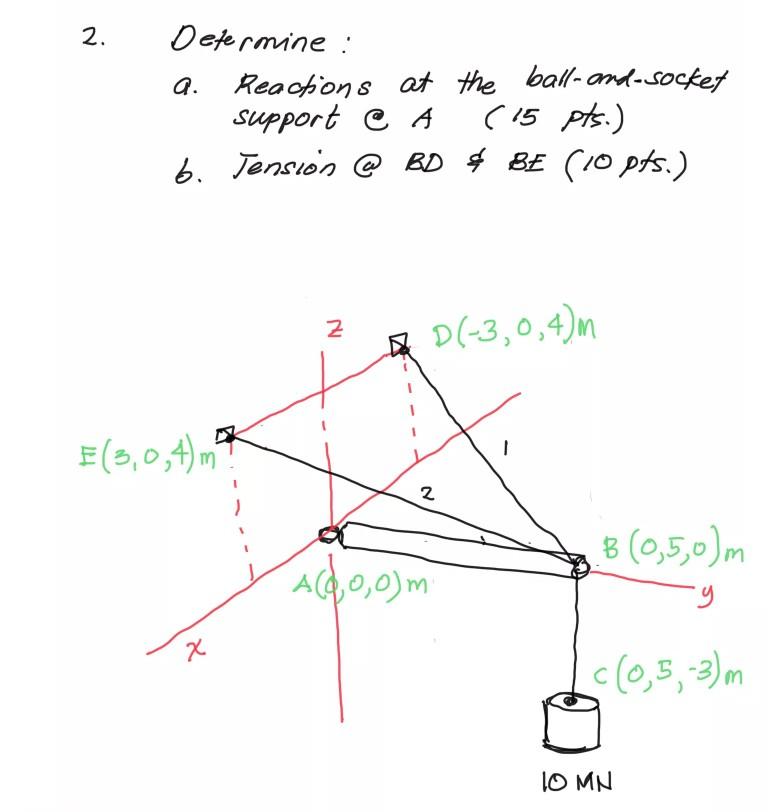 2. Determine :
a. Reactions at the ball-and-socket
support @ A (15 pts.)
b. Tension @ BD & BE (10 pts.)
z
D(-3,0,4)m
E(3,0,4)m
1
2
B(0,5,0)m
A(0,0,0)m
y
x
C(0,5,-3)m
10 MN